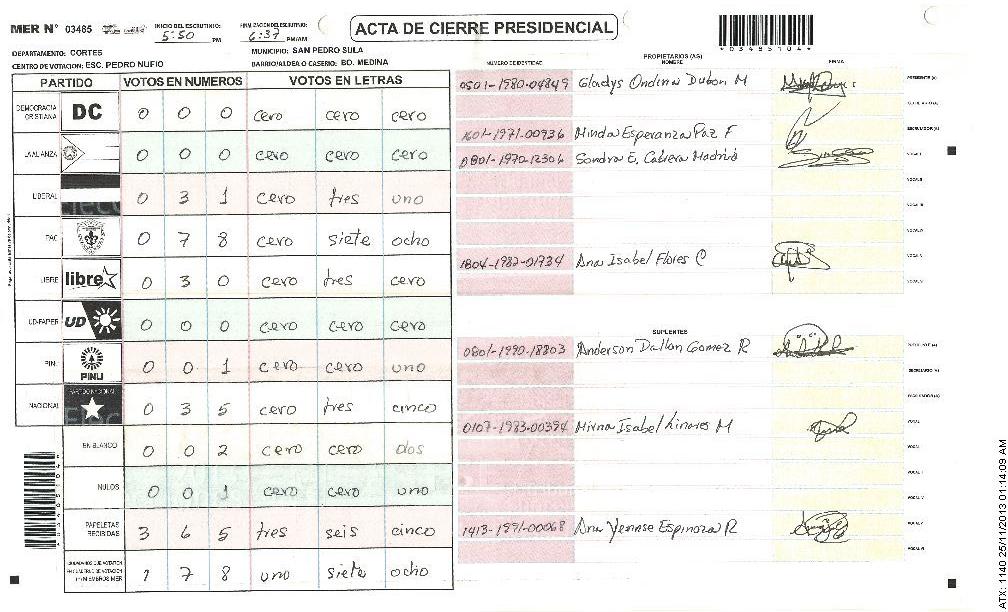 MER N° 03485
INICIO DEL ESCRUTINIO: 5:50 PM
FINALIZACION DEL ESCRUTINIO: 6:37 PM/AM
ACTA DE CIERRE PRESIDENCIAL
DEPARTAMENTO: CORTES
MUNICIPIO: SAN PEDRO SULA
CENTRO DE VOTACION: ESC. PEDRO NUFIO
BARRIO/ALDEA O CASERIO: BO. MEDINA
PARTIDO VOTOS EN NUMEROS VOTOS EN LETRAS
DEMOCRACIA CRISTIANA DC 0 0 0 cero cero cero
LA ALIANZA 0 0 0 cero cero cero
LIBERAL 0 3 1 cero tres uno
PAC 0 7 8 cero siete ocho
LIBRE libre 0 3 0 cero tres cero
UD-FAPER UD 0 0 0 cero cero cero
PINU PINU 0 0 1 cero cero uno
NACIONAL PARTIDO NACIONAL 0 3 5 cero tres cinco
EN BLANCO 0 0 2 cero cero dos
NULOS 0 0 1 cero cero uno
PAPELETAS RECIBIDAS 3 6 5 tres seis cinco
1 7 8 uno siete ocho
PROPIETARIOS (AS)
NUMERO DE IDENTIDAD NOMBRE FIRMA
0501-1980-04849 Gladys Ondina Dubon M
1601-1971-00936 Minda Esperanza Paz F
0801-1970-12306 Sondra E. Cabrera Madrid
1804-1982-01734 Ana Isabel Flores C
SUPLENTES
0801-1990-18803 Anderson Dallan Gomez R
0107-1983-00394 Mirna Isabel Linares M
1413-1991-00068 Ana Yensse Espinoza R
ATX: 1140 25/11/2013 01:14:09 AM